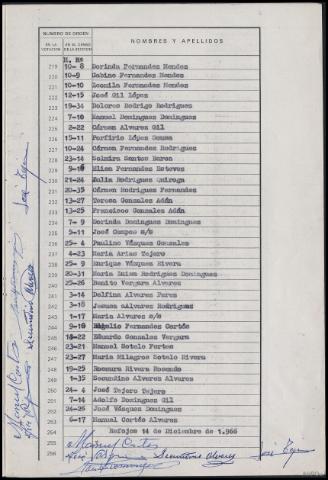 NUMERO DE ORDEN
NOMBRES Y APELLIDOS
EN LA VOTACION
EN EL CENSO DE LA SECCION
H. Nº
219 10- 8 Dorinda Fernandes Mendes
220 10-9 Gabino Fernandes Mendes
221 10-10 Leonila Fernandes Mendes
222 12-15 José Gil López
223 19-34 Dolores Rodrigo Rodrigues
224 7-10 Manuel Domingues Domingues
225 2-22 Cármen Alvares Gil
226 11-15 Porfirio López Sousa
227 10-24 Cármen Fernandes Rodrigues
228 23-14 Balmira Santos Baron
229 9-18 Elisa Fernandes Esteves
230 21-24 Julia Rodrigues Quiroga
231 20-35 Cármen Rodrigues Fernandes
232 13-27 Teresa Gonzales Adán
233 13-25 Francisco Gonzales Adán
234 7- 9 Dorinda Domingues Domingues
235 5-11 José Campos s/s
236 25- 4 Paulino Vásques Gonzales
237 4-23 Maria Arias Tejero
238 25- 9 Enrique Vásques Rivera
239 20-31 Maria Luisa Rodrigues Domingues
240 25-26 Benito Vergara Alvares
241 3-14 Delfina Alvares Peres
242 3-20 Jesusa Alvares Rodrigues
243 1-17 Maria Alvares s/s
244 9-10 Rogelio Fernandes Cortés
245 15-22 Eduardo Gonzales Vergara
246 23-21 Manuel Sotelo Fortes
247 23-27 Maria Milagros Sotelo Rivera
248 19-25 Rosaura Rivera Rosendo
249 1-35 Secundino Alvares Alvares
250 24- 4 José Tejero Tejero
251 7-14 Adolfo Domingues Gil
252 24-26 José Vásques Domingues
253 6-17 Manuel Cortés Alvares
254 Refojos 14 de Diciembre de 1.966
255
256
Manuel Cortes
Secundino Alvarez
José Tejero